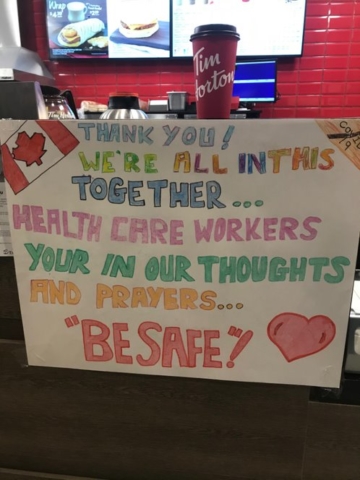 Wrap
Tim
Hortons
THANK YOU!
WE'RE ALL IN THIS
TOGETHER...
HEALTH CARE WORKERS
YOUR IN OUR THOUGHTS
AND PRAYERS...
"BE SAFE"!